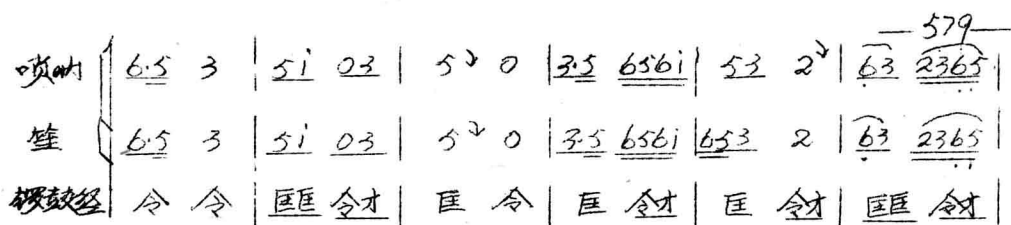 — 579 —
唢呐 6·5 3 | 5i 03 | 5 0 | 3·5 656i | 53 2 | 63 2365 |
笙 6·5 3 | 5i 03 | 5 0 | 3·5 656i | 653 2 | 63 2365 |
锣鼓经 令 令 | 匡匡 令才 | 匡 令 | 匡 令才 | 匡 令才 | 匡匡 令才 |